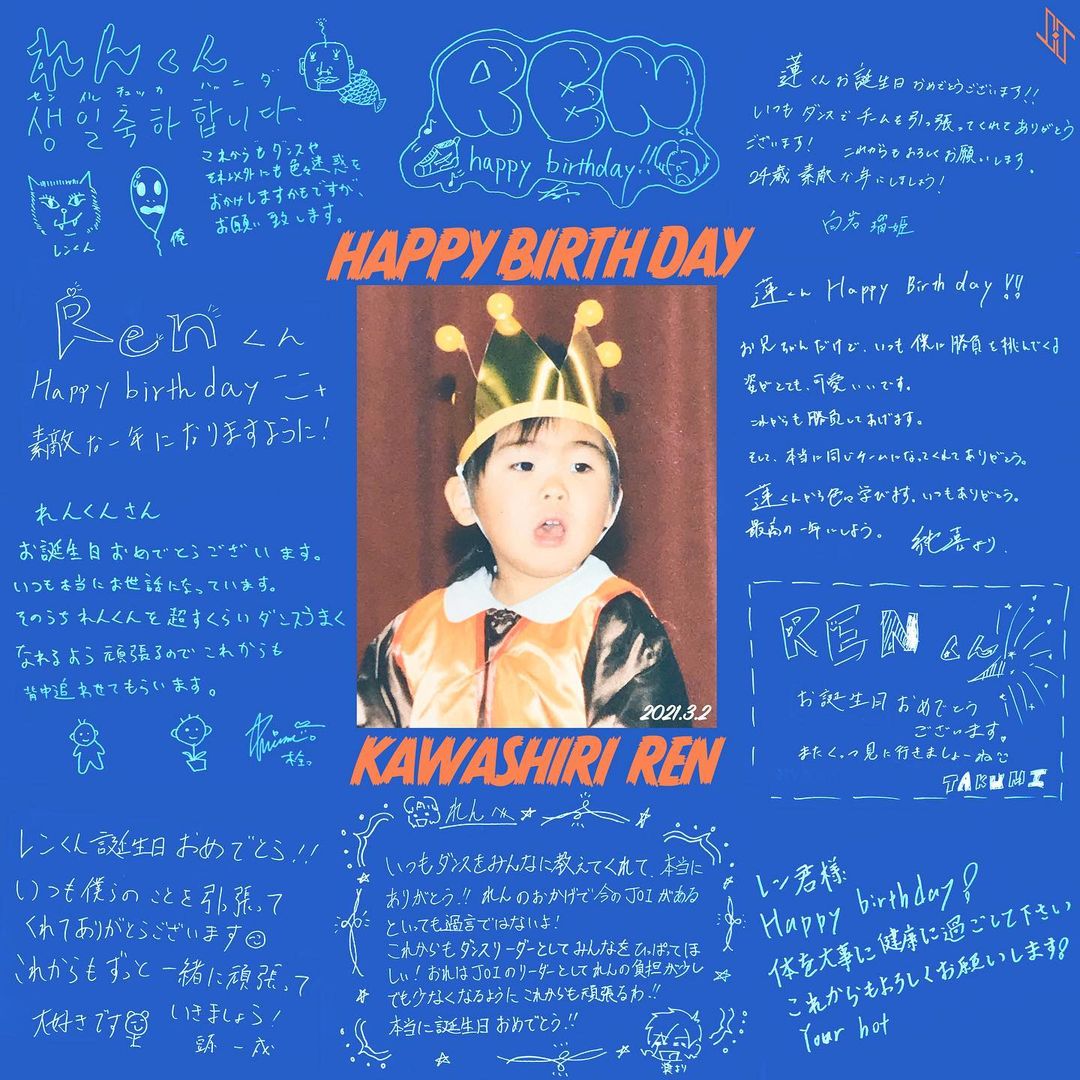 れんくん
センイルチュッカハムニダ
생일축하합니다.
これからもダンスや
それ以外にも色々迷惑を
おかけしますかもですが、
お願い致します。
レンくん
俺
REN
happy birthday!!
蓮くんお誕生日おめでとうございます!!
いつもダンスでチームを引っ張ってくれてありがとう
ございます! これからもよろしくお願いします。
24歳素敵な年にしましょう!
白岩瑠姫
HAPPY BIRTH DAY
Renくん
Happy birth day
素敵な一年になりますように!
蓮くん Happy Birth day!!
お兄ちゃんだけど、いつも僕に勝負を挑んでくる
姿がとても、可愛いいです。
これからも勝負してあげます。
そして、本当に同じチームになってくれてありがとう。
蓮くんから色々学びます。いつもありがとう。
最高の一年にしよう。
純喜より.
れんくんさん
お誕生日おめでとうございます。
いつも本当にお世話になっています。
そのうちれんくんを超すくらいダンスうまく
なれるよう頑張るのでこれからも
背中追わせてもらいます。
2021.3.2
KAWASHIRI REN
RENくん
お誕生日おめでとう
ございます。
またくっつ見に行きましょーね
TAKUMI
レンくん誕生日おめでとう!!
いつも僕らのことを引張って
くれてありがとうございます
これからもずっと一緒に頑張って
いきましょう!
大好きです
れん
いつもダンスをみんなに教えてくれて、本当に
ありがとう!! れんのおかげで今のJO1がある
といっても過言ではないよ!
これからもダンスリーダーとしてみんなをひっぱってほ
しい! おれはJO1のリーダーとしてれんの負担が少し
でも少なくなるようにこれからも頑張るわ!!
本当に誕生日おめでとう!!
奨より
レン君様
Happy birthday!
体を大事に健康に過ごして下さい
これからもよろしくお願いします!
Your bot